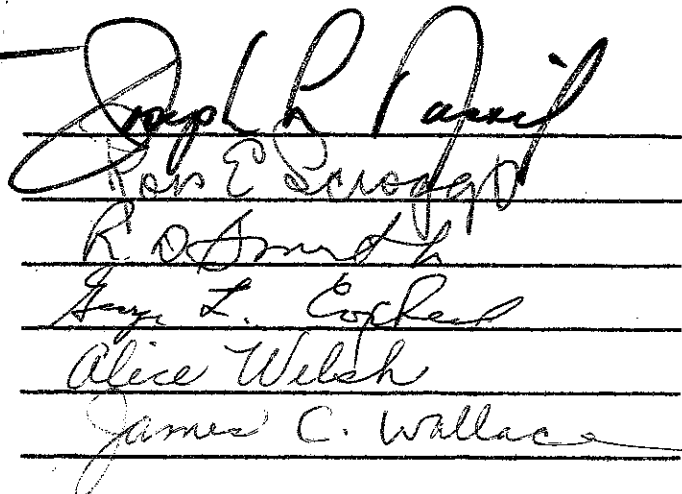 Joseph L. Nassif
Ross E Scroggs
R D Smith
George L. Coxhead
Alice Welsh
James C. Wallace